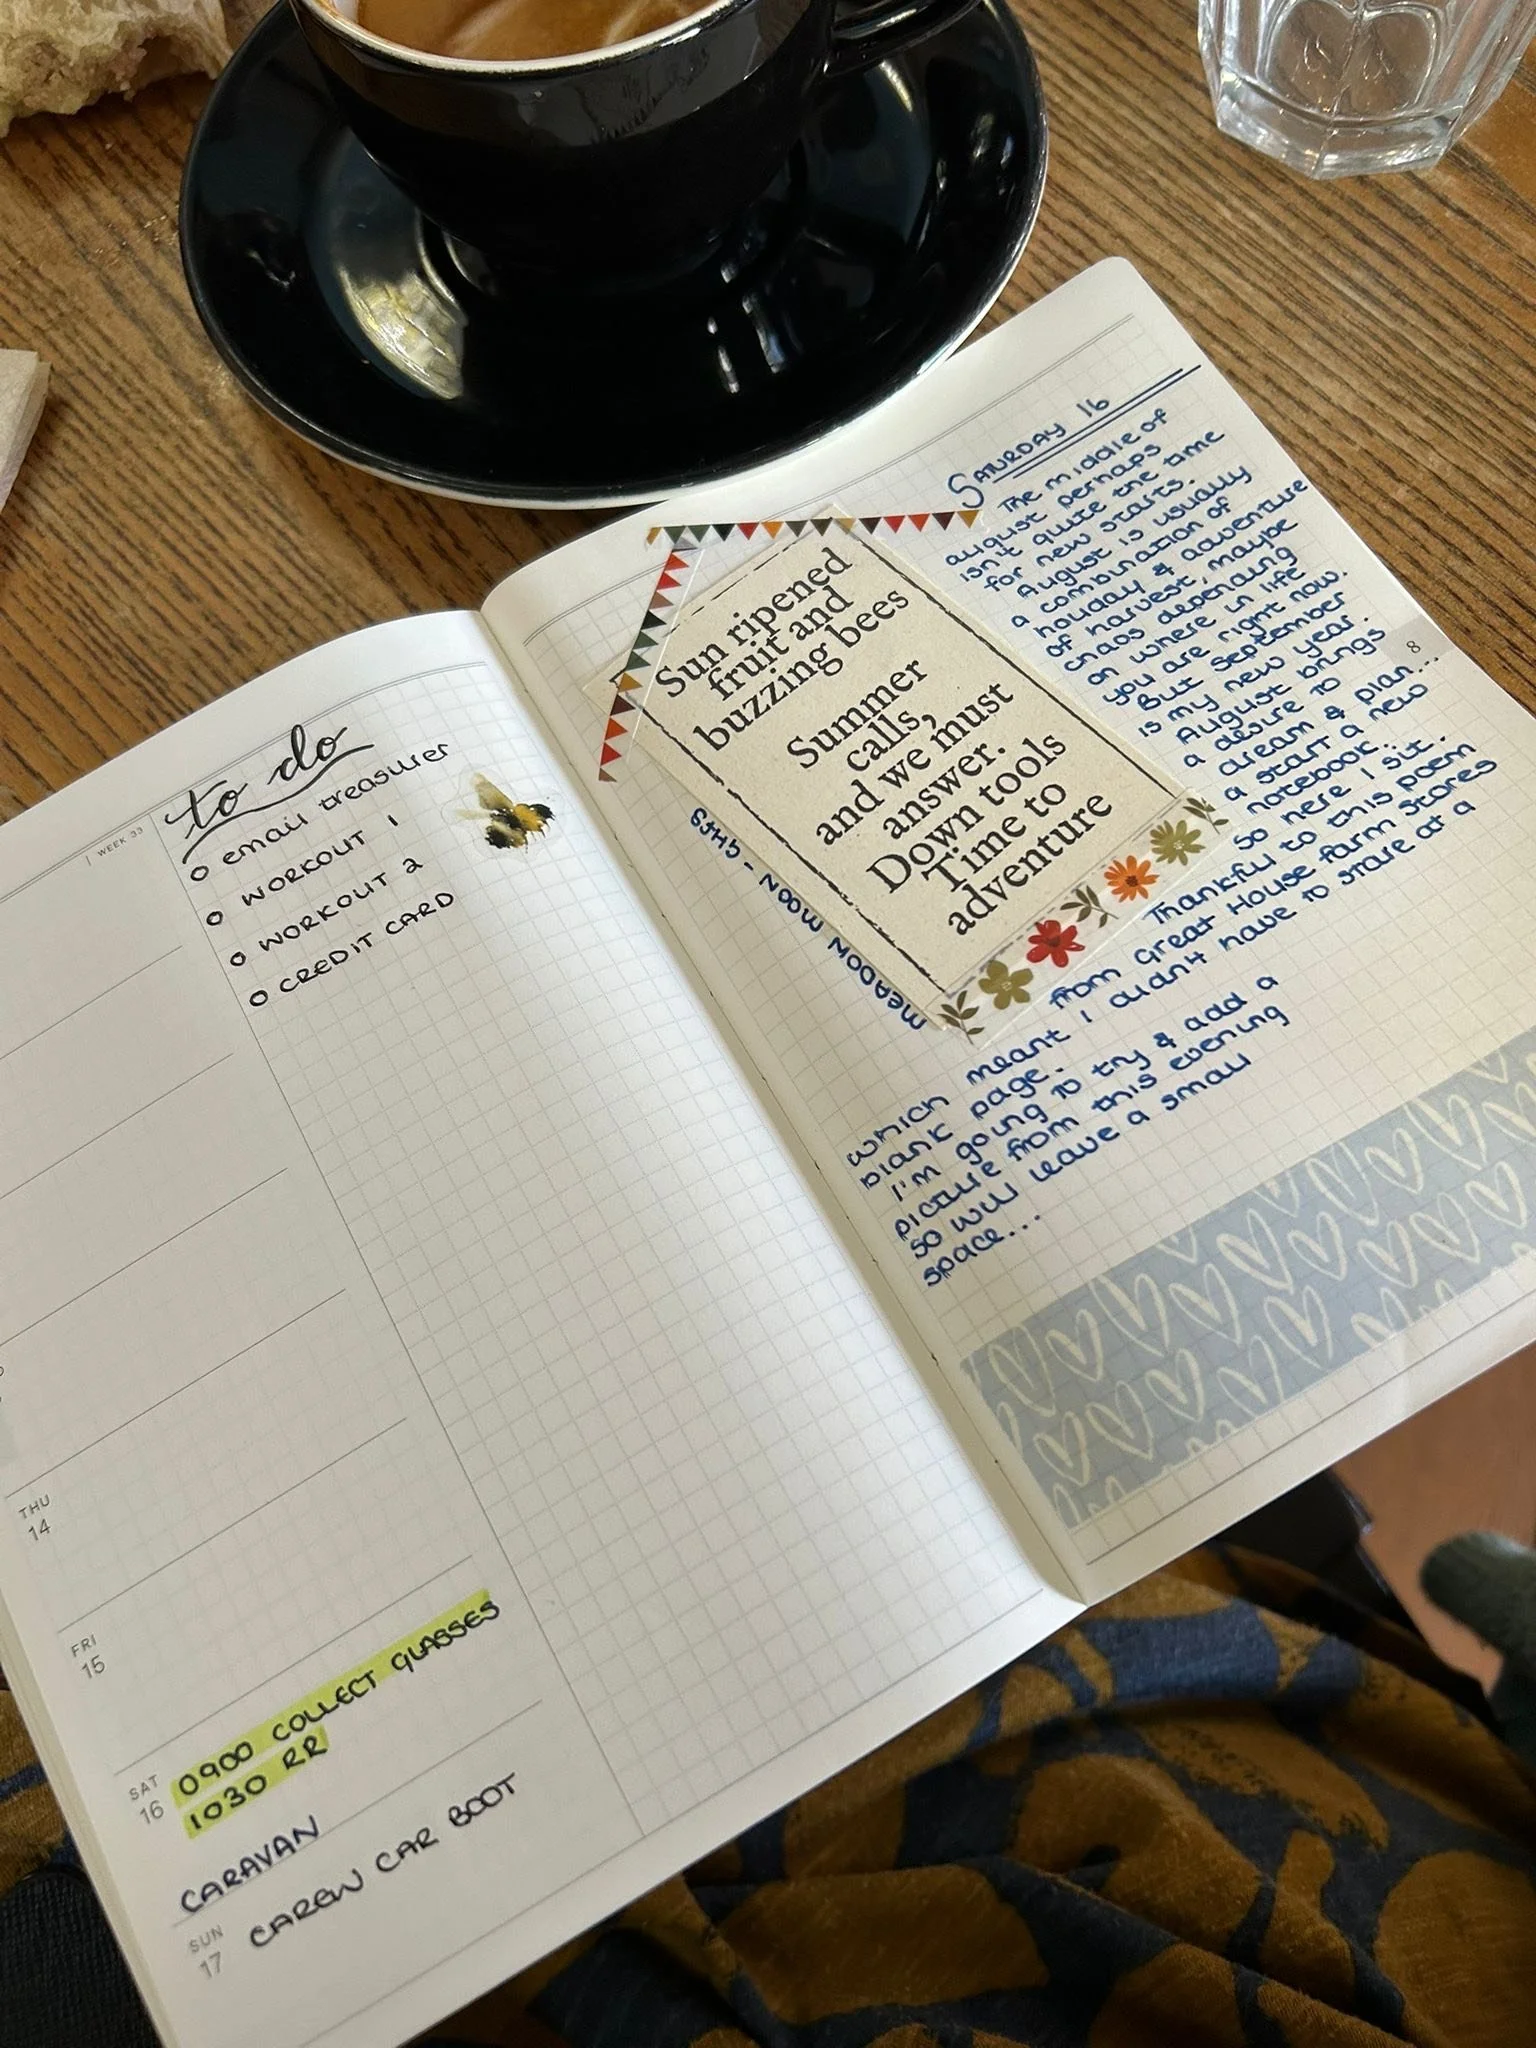 WEEK 33
to do
O email treasurer
O WORKOUT 1
O WORKOUT 2
O CREDIT CARD
THU
14
FRI
15
SAT
16
0900 COLLECT GLASSES
1030 RR
CARAVAN
SUN
17
CAREW CAR BOOT
SATURDAY 16
The middle of
august perhaps
isn't quite the time
for new starts.
August is usually
a combination of
holiday & adventure
of harvest, maybe
chaos depending
on where in life
you are right now.
But September
is my new year.
August brings
a desire to
dream & plan...
& start a new
notebook..
so here I sit.
Thankful to this poem
from Great House farm Stores
which meant I didn't have to stare at a
blank page.
I'm going to try & add a
picture from this evening
so will leave a small
space...
Sun ripened
fruit and
buzzing bees
Summer
calls,
and we must
answer.
Down tools
Time to
adventure
MEADOW MOON - GHFS
8